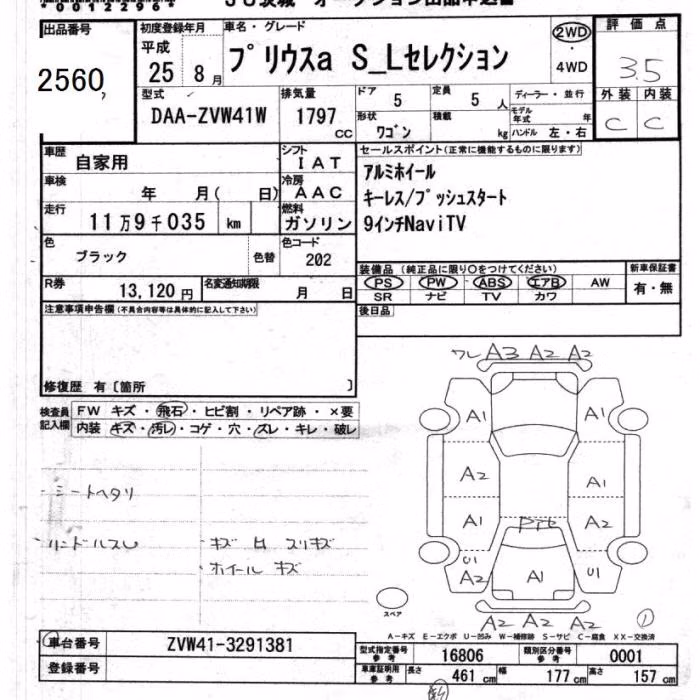 00122964 JU茨城 オークション出品申込書
出品番号 初度登録年月 車名・グレード 評価点
2560 平成 25 8月 プリウスa S_Lセレクション 2WD・4WD 3.5
型式 排気量 ドア 定員 ディーラー・並行 外装 内装
DAA-ZVW41W 1797 CC 5 5人 モデル年式 年 C C
形状 ワゴン 積載 kg ハンドル 左・右
車歴 自家用 シフト IAT セールスポイント(正常に機能するものに限ります)
車検 年 月( 日) 冷房 AAC アルミホイール
走行 11万9千035 km 燃料 ガソリン キーレス/プッシュスタート
9インチNaviTV
色 ブラック 色替 色コード 202
装備品 (純正品に限り○をつけてください) 新車保証書
R券 13,120円 名変通知期限 月 日 PS PW ABS エアB AW 有・無
SR ナビ TV カワ
注意事項申告欄(不具合内容等は具体的に記入して下さい) 後日品
修復歴 有〔箇所 〕
検査員記入欄 FW キズ・飛石・ヒビ割・リペア跡・×要
内装 キズ・汚レ・コゲ・穴・スレ・キレ・破レ
シートヘタリ
ハンドルスレ ・キズ 凹 スリキズ
・ホイール キズ
ワレ A3 A2 A2
A1 A1
A2 A1
A1 A2
U1 A2 A1 U1
A2 A2 A2
スペア
A-キズ E-エクボ U-凹み W-補修跡 S-サビ C-腐食 XX-交換済
車台番号 ZVW41-3291381 型式指定番号 参考 16806 類別区分番号 参考 0001
登録番号 車庫証明用 参考 長さ 461 cm 幅 177 cm 高さ 157 cm